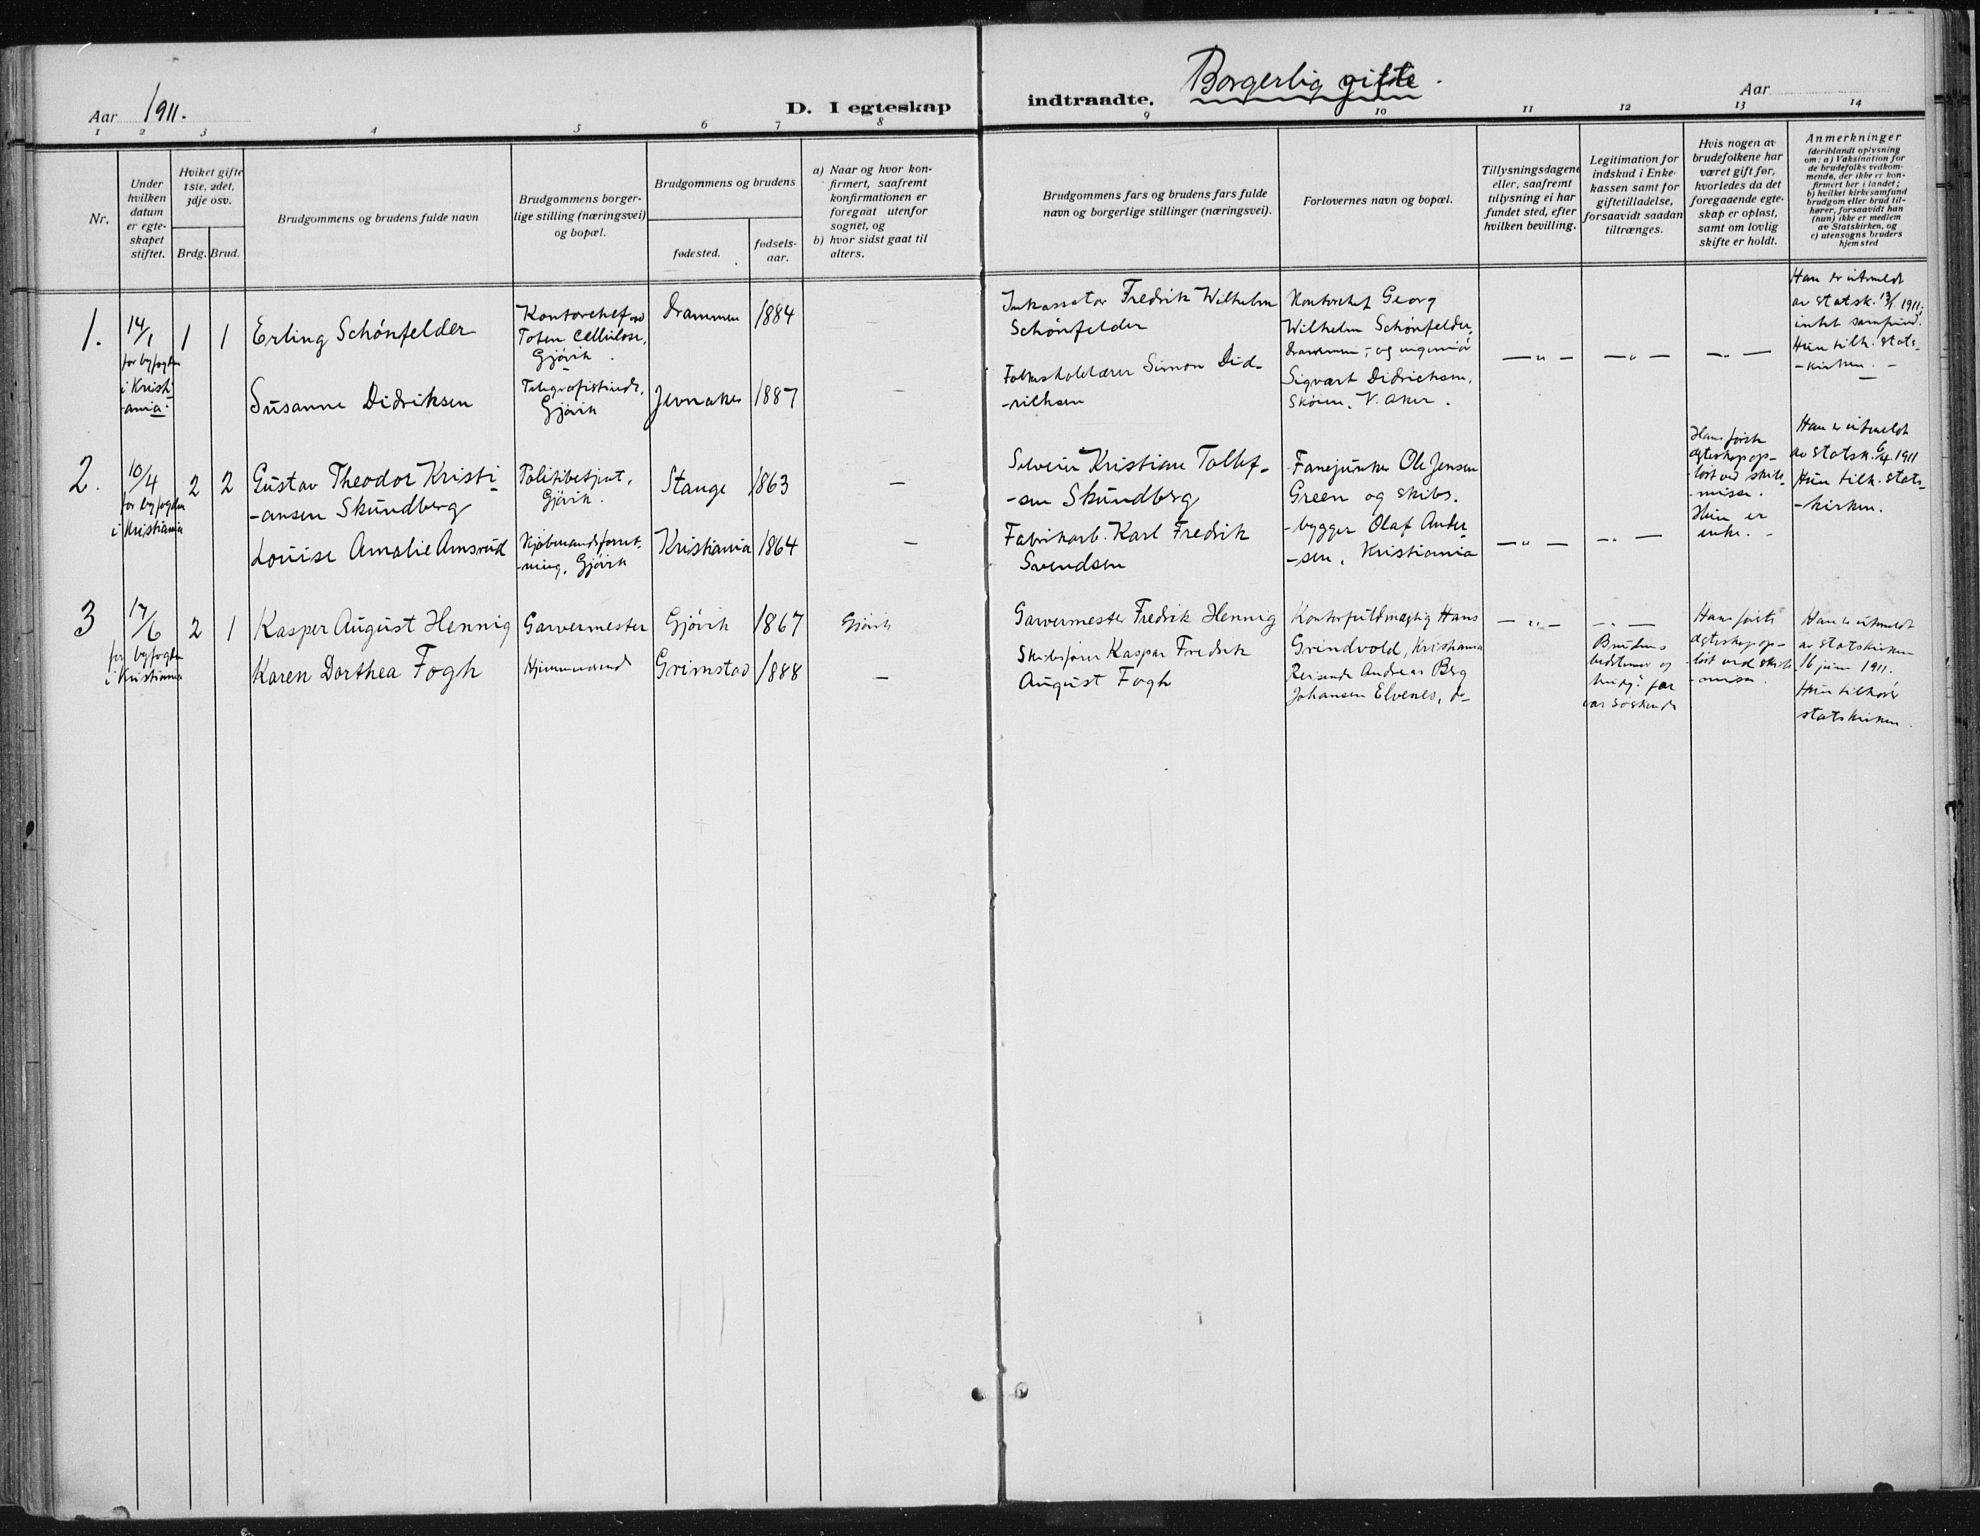 Aar 1911.
D. I egteskap indtraadte. Borgerlig gifte.
Aar
1 2 3 4 5 6 7 8 9 10 11 12 13 14
Nr.
Under
hvilken
datum
er egte-
skapet
stiftet.
Hviket gifte
1ste, 2det,
3dje osv.
Brdg. Brud.
Brudgommens og brudens fulde navn
Brudgommens borger-
lige stilling (næringsvei)
og bopæl.
Brudgommens og brudens
fødested.
fødsels-
aar.
a) Naar og hvor kon-
firmert, saafremt
konfirmationen er
foregaat utenfor
sognet, og
b) hvor sidst gaat til
alters.
Brudgommens fars og brudens fars fulde
navn og borgerlige stillinger (næringsvei).
Forlovernes navn og bopæl.
Tillysningsdagene
eller, saafremt
tillysning ei har
fundet sted, efter
hvilken bevilling.
Legitimation for
indskud i Enke-
kassen samt for
giftetilladelse,
forsaavidt saadan
tiltrænges.
Hvis nogen av
brudefolkene har
været gift før,
hvorledes da det
foregaaende egte-
skap er opløst,
samt om lovlig
skifte er holdt.
Anmerkninger
(deriblandt oplysning
om: a) Vaksination for
de brudefolks vedkom-
mende, der ikke er kon-
firmert her i landet;
b) hvilket kirkesamfund
brudgom eller brud til-
hører, forsaavidt han
(hun) ikke er medlem
av Statskirken, og
c) utensogns bruders
hjemsted
1.
14/1
for byfogden
i Kristi-
-ania.
1 1
Erling Schönfelder
Kontorchef ved
Toten Cellulose,
Gjövik.
Drammen 1884
Inkassator Fredrik Wilhelm
Schönfelder
Kontorchef Georg
Wilhelm Schönfelder,
Drammen, og ingeniör
Sigvart Didrichsen,
Sköien, V. Aker.
— " —
— " —
— " —
Han er utmeldt
av statsk. 13/1 1911;
intet samfund.
Hun tilh. stats-
-kirken. —
Susanne Didriksen
Telegrafistinde,
Gjövik
Jevnaker 1887
—
Folkeskolelærer Simon Did-
-richsen
2.
10/4
for byfogden
i Kristiania
2 2
Gustav Theodor Kristi-
-ansen Skundberg
Politibetjent,
Gjövik.
Stange 1863
—
Sølveier Kristian Tollef-
-sen Skundberg
Fanejunker Ole Jensen
Green og skibs-
-bygger Olaf Ander-
-sen, Kristiania
— " —
— " —
Hans förste
egteskap op-
-löst ved skils-
-misse.
Hun er
enke. —
Han er utmeldt
av statsk. 6/4 1911
Hun tilh. stats-
-kirken.
Louise Amalie Amsrud
Kjøbmandsforret-
-ning, Gjövik
Kristiania 1864
—
Fabrikarb. Karl Fredrik
Svendsen
3
17/6
for byfogden
i Kristiania
2 1
Kasper August Hennig
Garvermester
Gjövik 1867
Gjövik
Garvermester Fredrik Hennig
Kontorfuldmægtig Hans
Grindvold, Kristiania
Reisende Andreas Berg
Johansen Elvenes, do
— " —
— " —
Brudens
bedstemor og
brudg.s far
var söskende
Hans förste
egteskap op-
-löst ved skils-
-misse.
Han er utmeldt
av statskirken
16 juni 1911.
Hun tilhörer
statskirken.
Karen Dorthea Fogh
Hjemmeværende
Grimstad 1888
—
Skibsförer Kaspar Fredrik
August Fogh